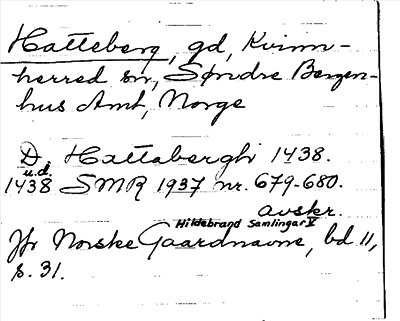 Hatteberg, gd, Kvinn-
herred sn, Søndre Bergen-
hus Amt, Norge
D. Hattabergh 1438.
u.d.
1438 SMR 1937 nr. 679-680.
avskr.
Hildebrand Samlingar V
Jfr Norske Gaardnavne, bd 11,
s. 31.